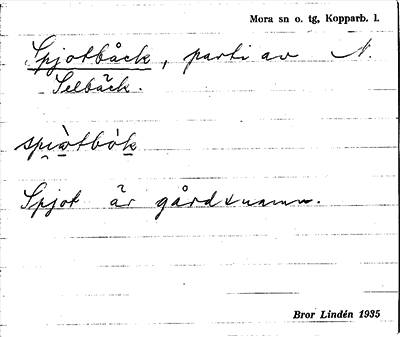 Mora sn o. tg, Kopparb. l.
Spjotbåck, parti av N.
Selbäck.
spi̯ò̤tbòk̲
Spjot är gårdsnamn.
Bror Lindén 1935